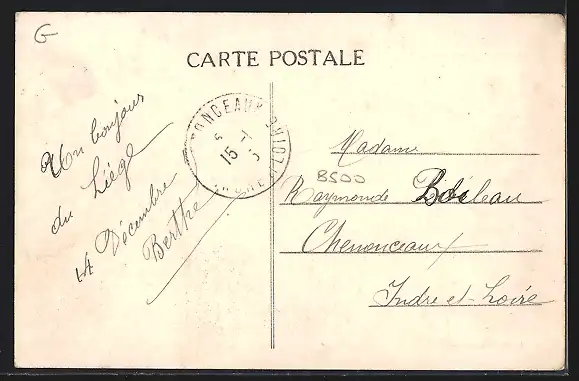 G
CARTE POSTALE
Un bonjour
du Liège
14 Décembre
Berthe
15
Madame
8500
Raymonde Boileau
Chenonceaux
Indre et Loire